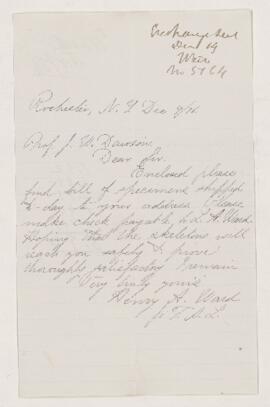 Exchange sent
Dec 19
Weir
No 5764
Rochester, N.Y. Dec 9/
Prof. J. W. Dawson,
Dear Sir.
Enclosed please
find bill of specimens shipped
to-day to your address. Please
make check payable to L. A. Ward.
Hoping that the skeletons will
reach you safely & prove
thoroughly satisfactory I remain
Very truly yours
Henry A. Ward